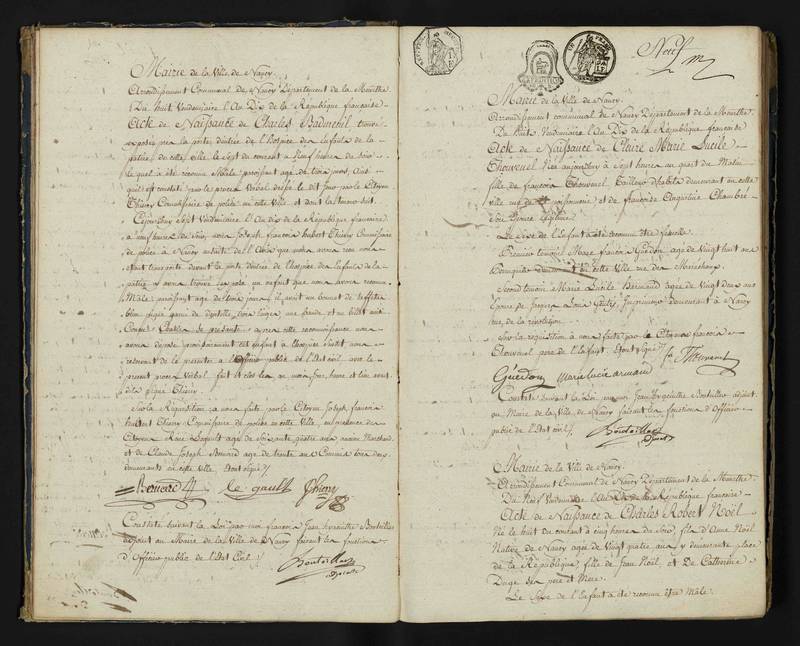 Mairie de la Ville de Nancy.
Arrondissement Communal de Nancy Département de la Meurthe
Du huit Vendemiaire l'An Dix de la République française
Acte de Naissance de Charles Badmenil trouvé
exposé près la porte d'entrée de l'hospice des Enfants de la
patrie, de cette ville le Sept du courant a Neuf heures du Soir
lequel a été reconnu Mâle paroissant agé de trois jours, Ainsi
qu'il est constaté par le procès Verbal dressé le dit jour par le Citoyen
Thiery Commissaire de police en cette Ville et dont la teneur suit.
Cejourd'huy Sept Vendemiaire l'An Dix de la République française
a neuf heures du soir, nous Joseph françois hubert Thiery Commissaire
de police à Nancy avertit de l'Avis que nous avons reçu nous
étant transporté devant la porte d'entrée de l'hospice des Enfants de la
patrie y avons trouvé un enfant que nous avons reconnu
Mâle paroissant agé de trois jours, il avoit un bonnet de taffetas
bleu piqué garni de dentelle, trois langes une bande, et un billet ainsi
Conçu Charles Se présente, après cette reconnoissance nous
avons déposé provisoirement cet enfant à l'hospice
de le présenter a l'Officier public de l'Etat civil avec le
présent procès Verbal fait et clos les an mois, jour, heure et lieu avant
dits signé Thiery.
Sur la Réquisition à nous faite par le Citoyen Joseph, françois
hubert Thiery Commissaire de police en cette ville, en présence des
Citoyens Legault agé de Soixante quatre ans ancien Marchand
et de Claude Joseph Bernard agé de trente ans Commis tous deux
demeurants en cette ville Sont signés
Bernard le gault Thiery
Constaté Suivant la Loi par moi françois Jean hyacinthe Boutailler
Adjoint au Maire de la Ville de Nancy faisant les fonctions
d'Officier public de l'Etat Civil.
Boutailler
Adjoint
Neuf
Mairie de la Ville de Nancy.
Arrondissement communal de Nancy Département de la Meurthe
Du huit Vendemiaire l'An Dix de la République française
Acte de Naissance de Claire Marie Lucile
Thouvenel Née aujourd'huy a Sept heures un quart du Matin
fille de françois Thouvenel, Tailleur d'habits demeurant en cette
ville rue de la poissonnerie et de françoise Augustine Chambré
son Epouse légitime
Le Sexe de l'Enfant a été reconnu femelle.
Premier temoin Marc françois Guerdon agé de Vingt huit ans
demeurant en cette Ville rue des Maréchaux.
Second temoin Marie Lucile agée de Vingt deux ans
Epouse de Jacques Louis Imprimeur demeurant à Nancy
rue de la révolution.
Sur la requisition à nous faite par le Citoyen françois
Thouvenel pere de l'Enfant, Sont signés f. Thouvenel
Guerdon Marie lucie
Constaté Suivant la Loi par moi Jean hyacinthe Boutailler adjoint
au Maire de la Ville de Nancy faisant les fonctions d'Officier
public de l'Etat civil.
Boutailler
Adjoint
Mairie de la Ville de Nancy.
Arrondissement Communal de Nancy Département de la Meurthe
Du Neuf Vendemiaire l'An Dix de la République française
Acte de Naissance de Charles Robert Noël
Né le huit du courant a cinq heures du Soir, fils d'Anne Noël
Native de Nancy agée de Vingt quatre ans y demeurante place
de la République, fille de Jean Noël et De Catherine
Dugé Ses pere et Mere.
Le Sexe de l'Enfant a été reconnu être Mâle.